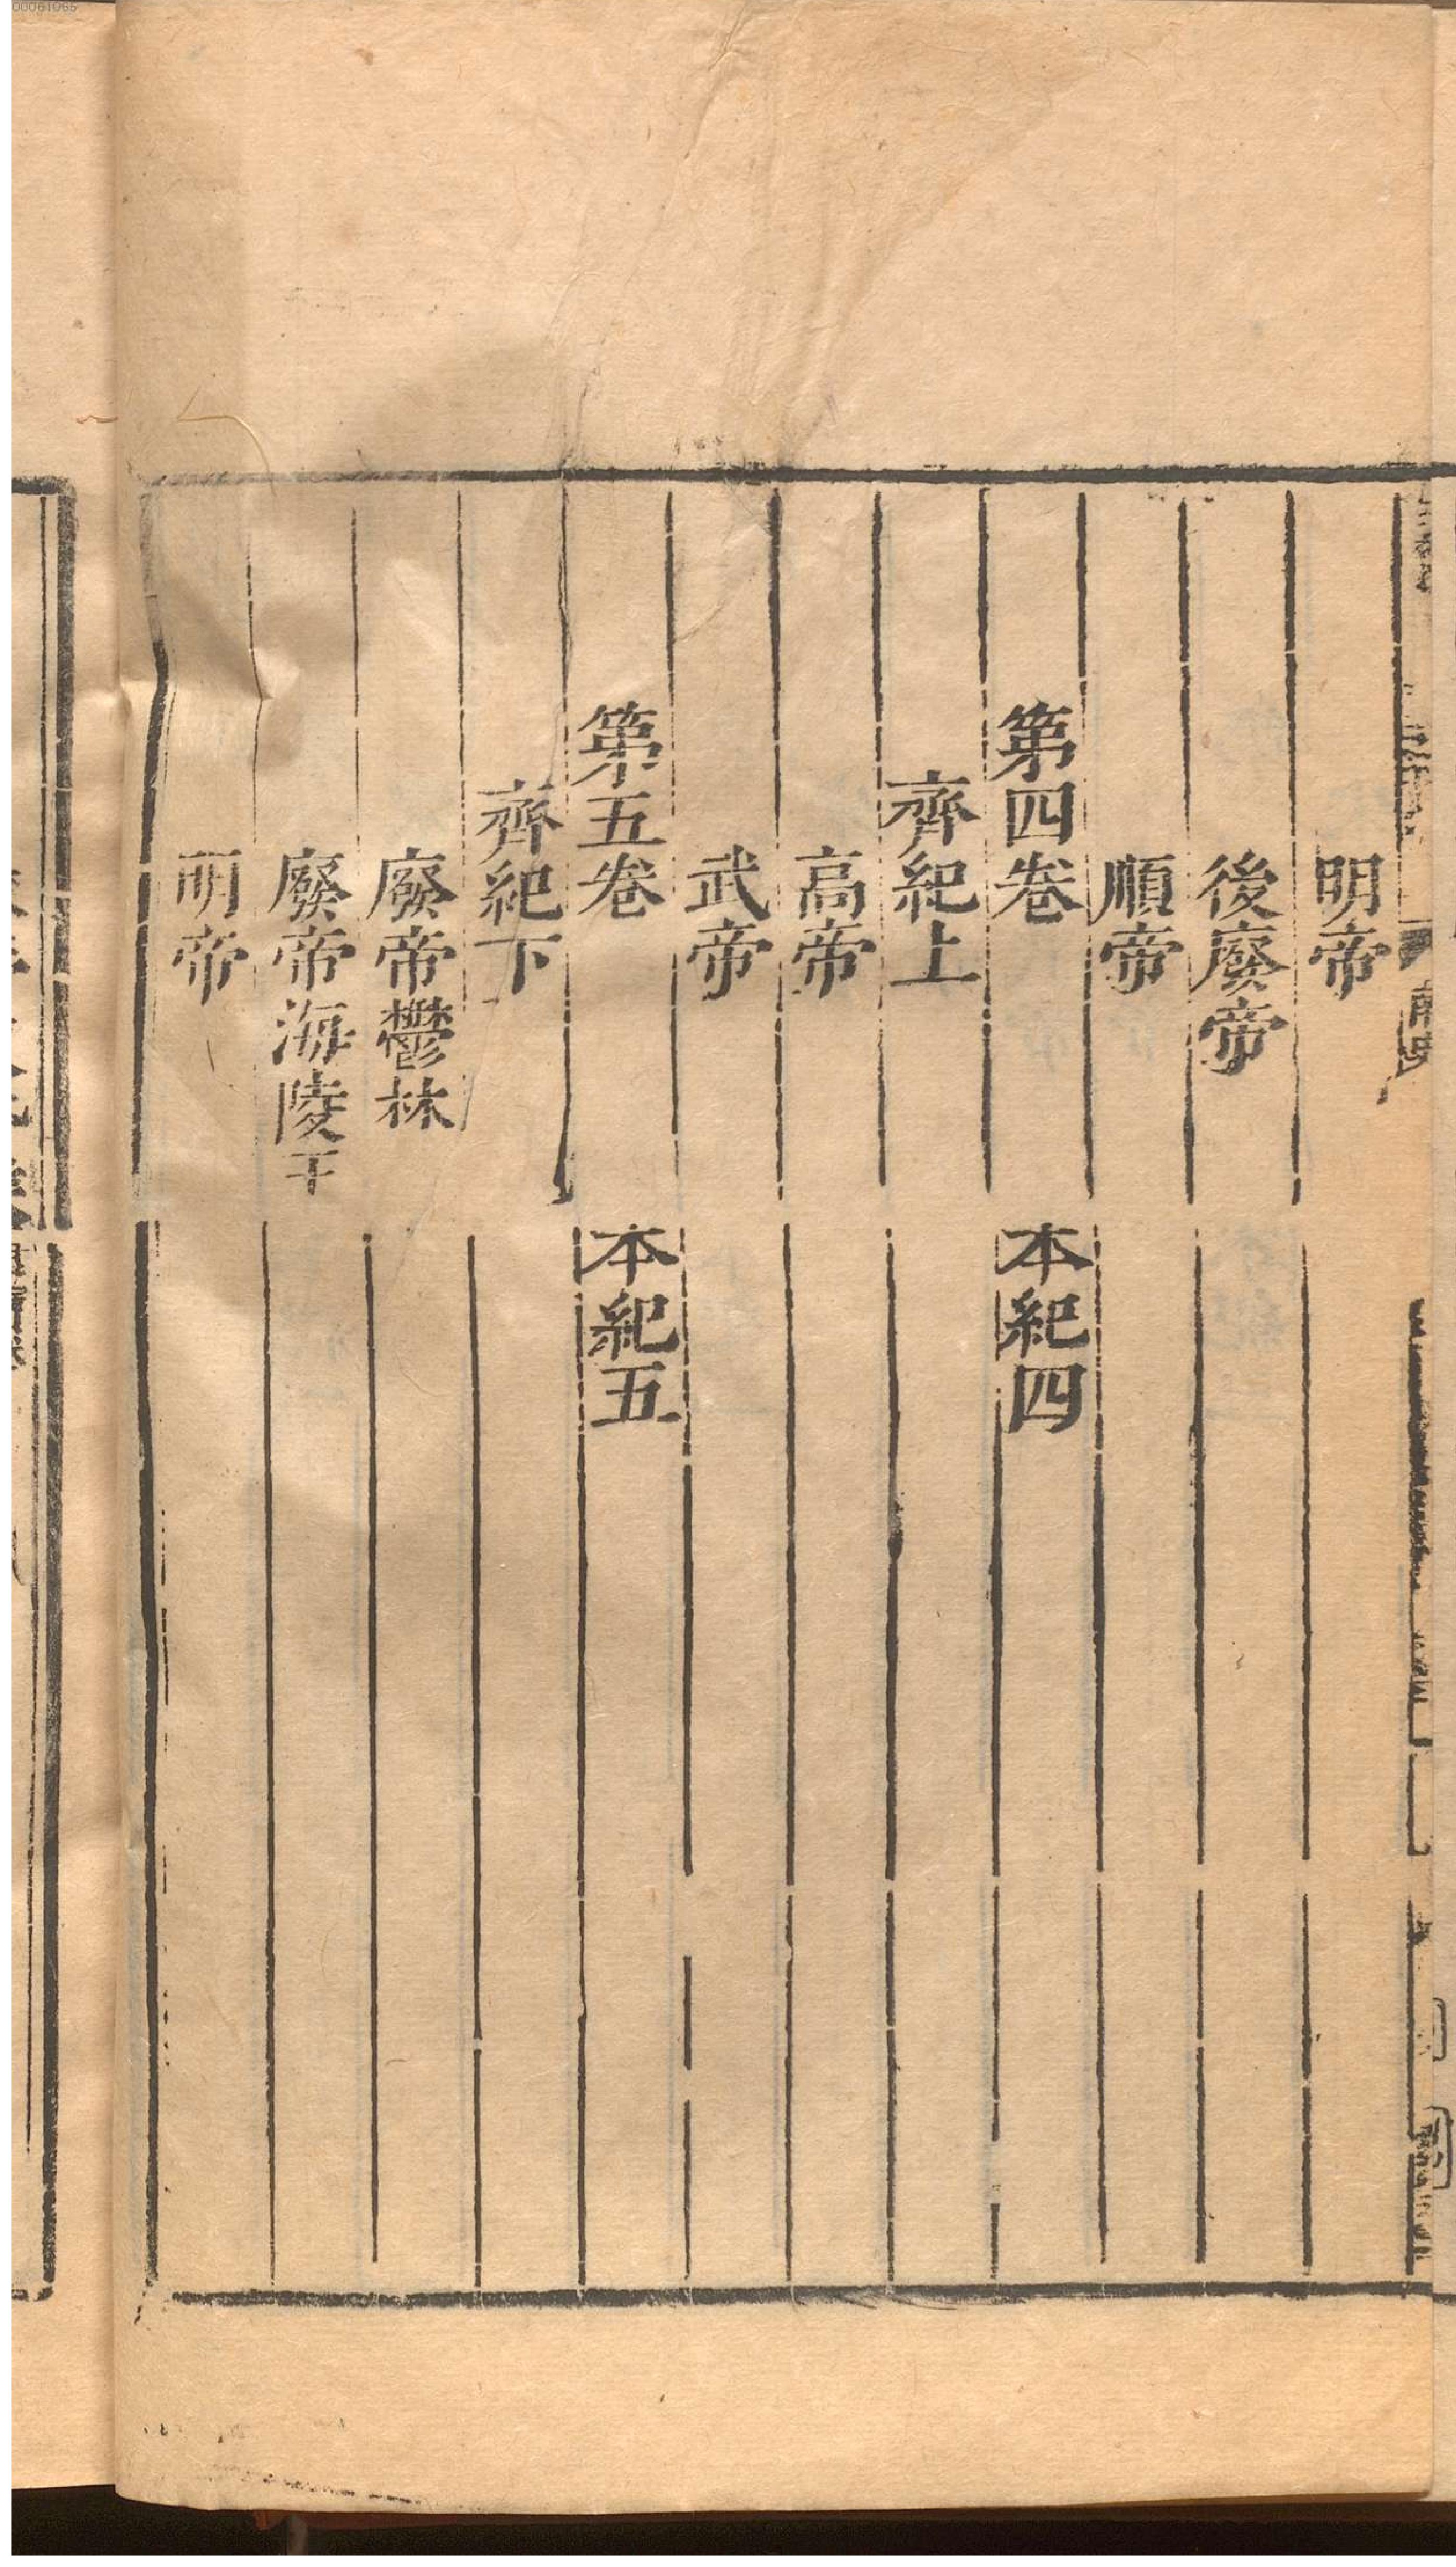 00061065
南史
明帝
後廢帝
順帝
第四卷 本紀四
齊紀上
高帝
武帝
第五卷 本紀五
齊紀下
廢帝鬱林
廢帝海陵王
明帝